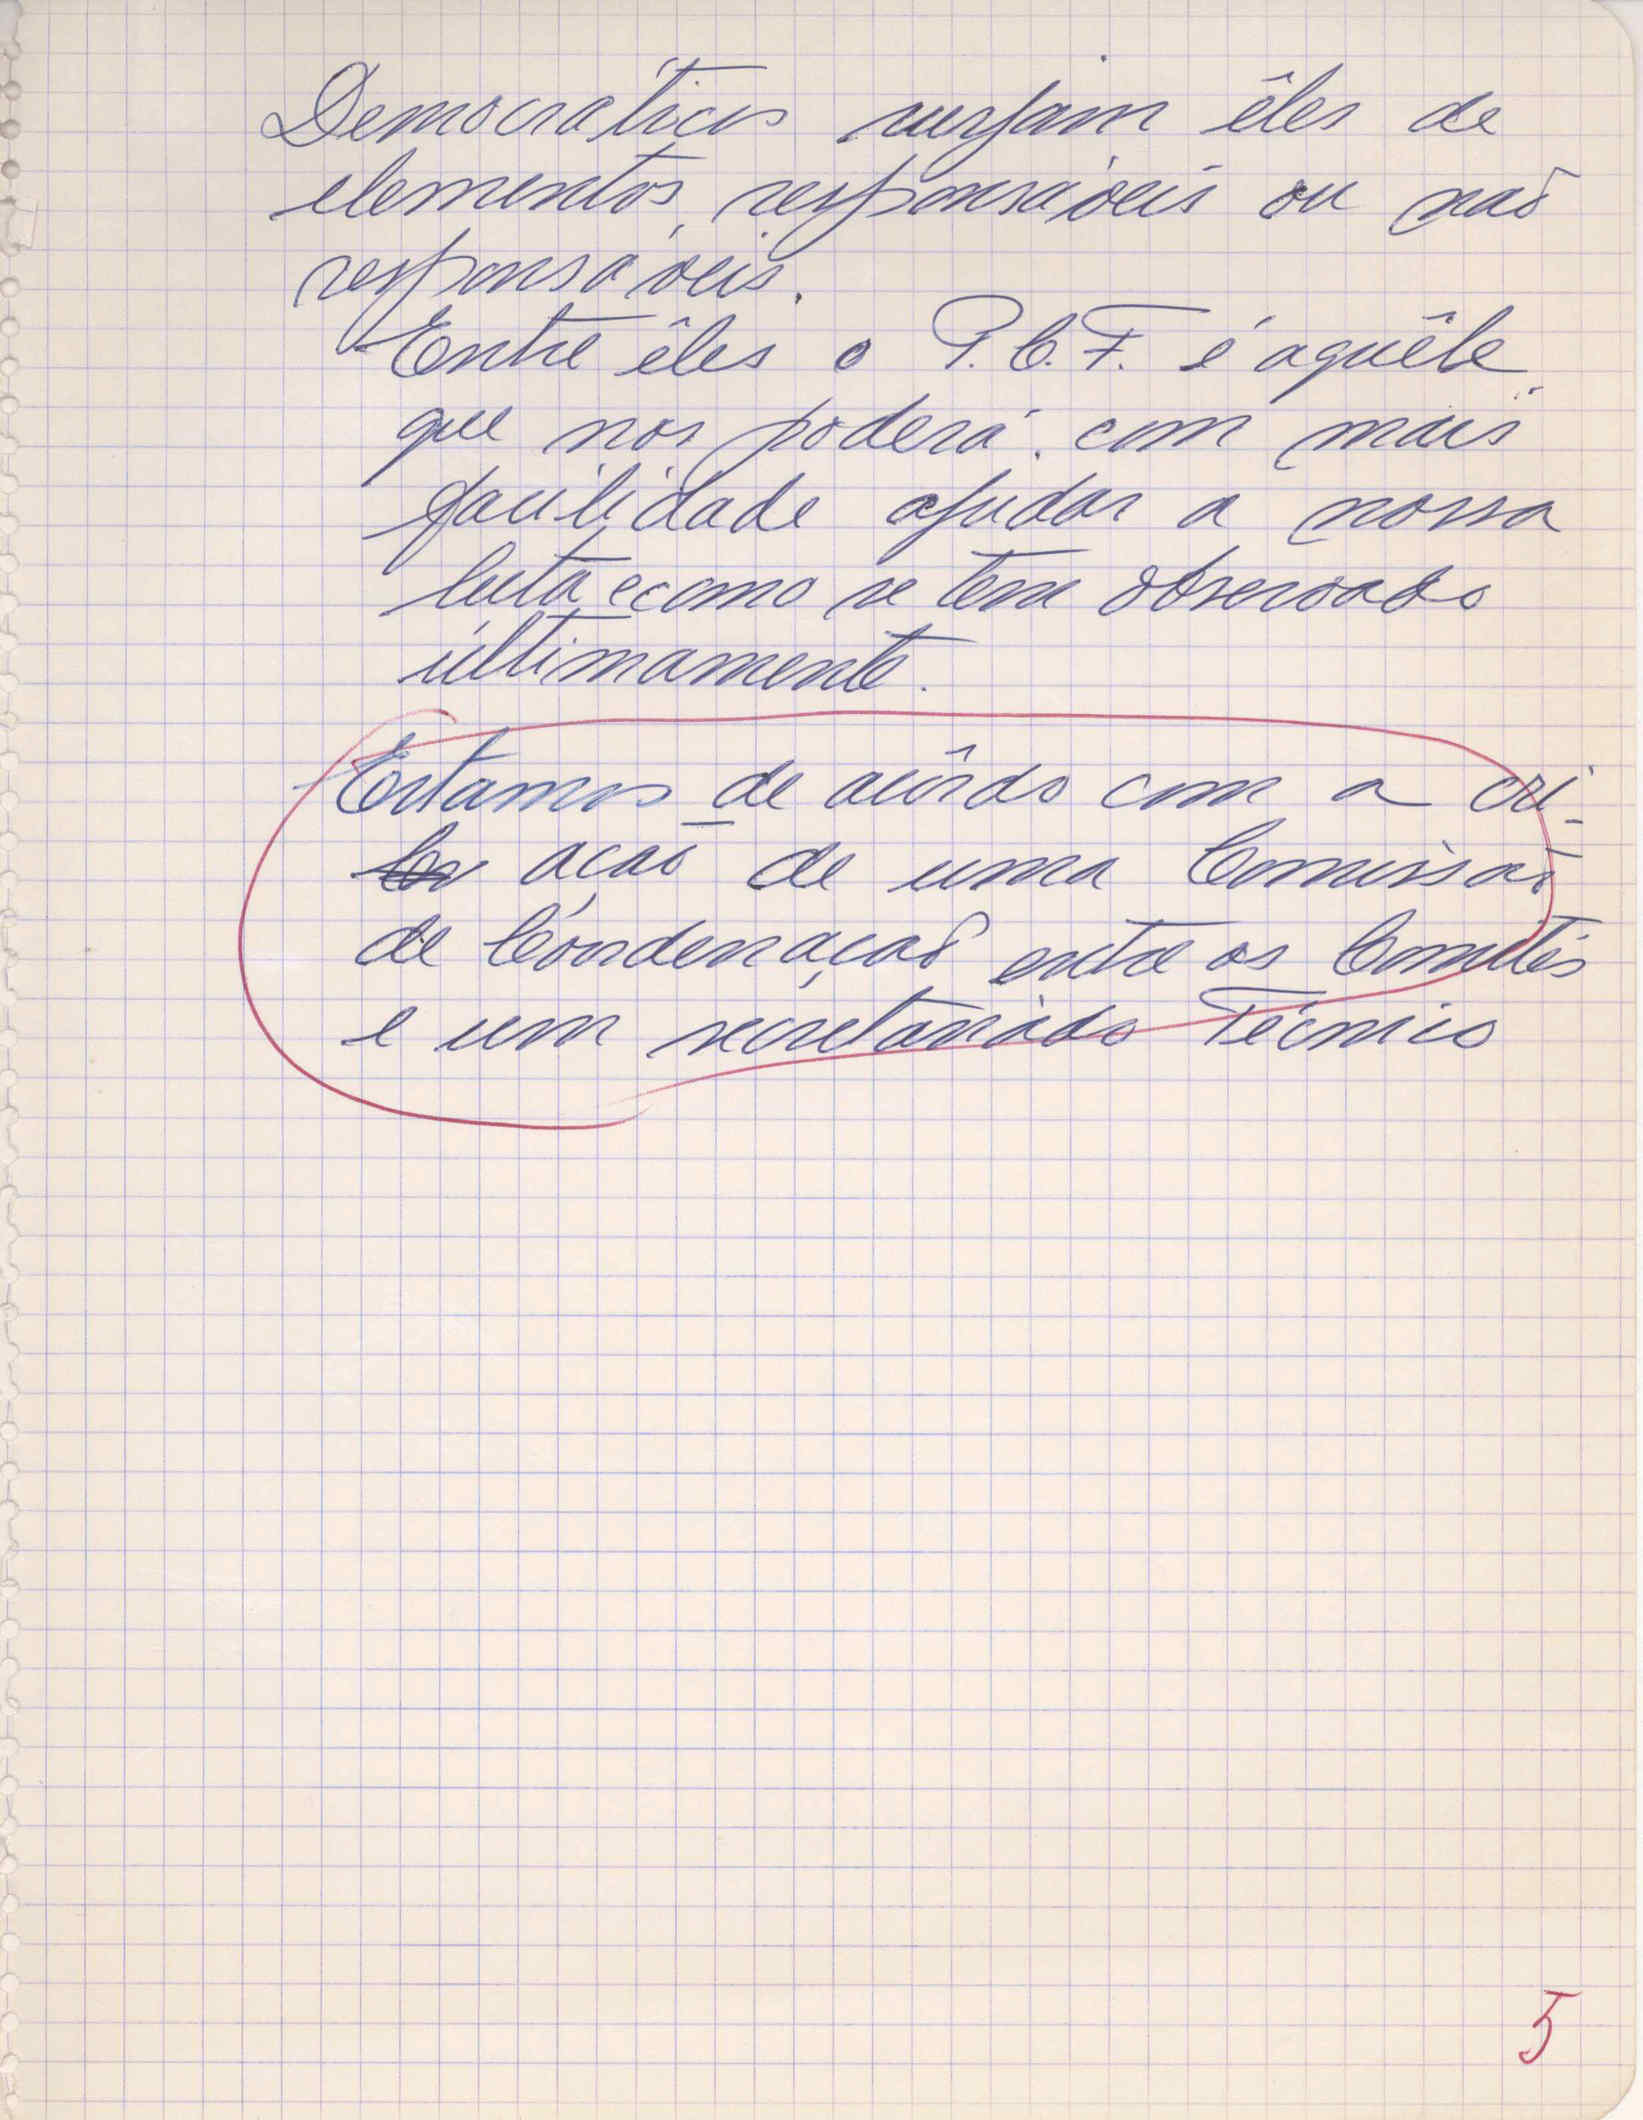 Democráticos surjam êles de
elementos responsáveis ou não
responsáveis.
Entre êles o P.C.F. é aquêle
que nos poderá com mais
facilidade ajudar a nossa
luta e como se tem observado
últimamente.
Estamos de acôrdo com a cri-
ação de uma Comissão
de Cóordenação entre os Comités
e um secretáriado Técnico
5